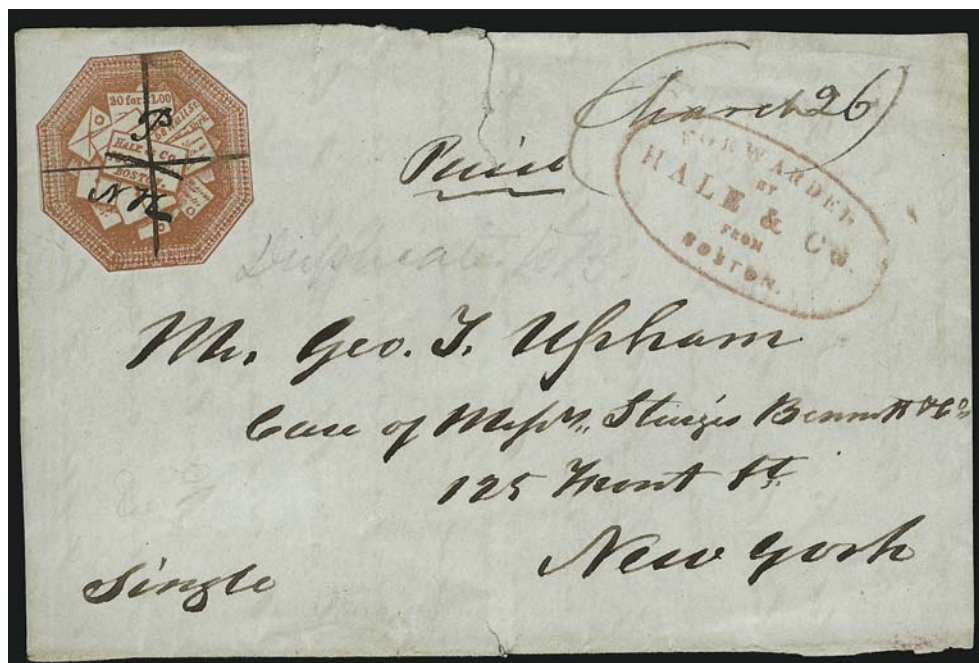 20 for $1.00
HALE & CO.
BOSTON.
March 26
Paid
FORWARDED
BY
HALE & CO.
FROM
BOSTON.
Duplicate
Mr. Geo. T. Upham
Care of Messrs. Sturgis Bennett & Co
125 Front St.
New York
Single